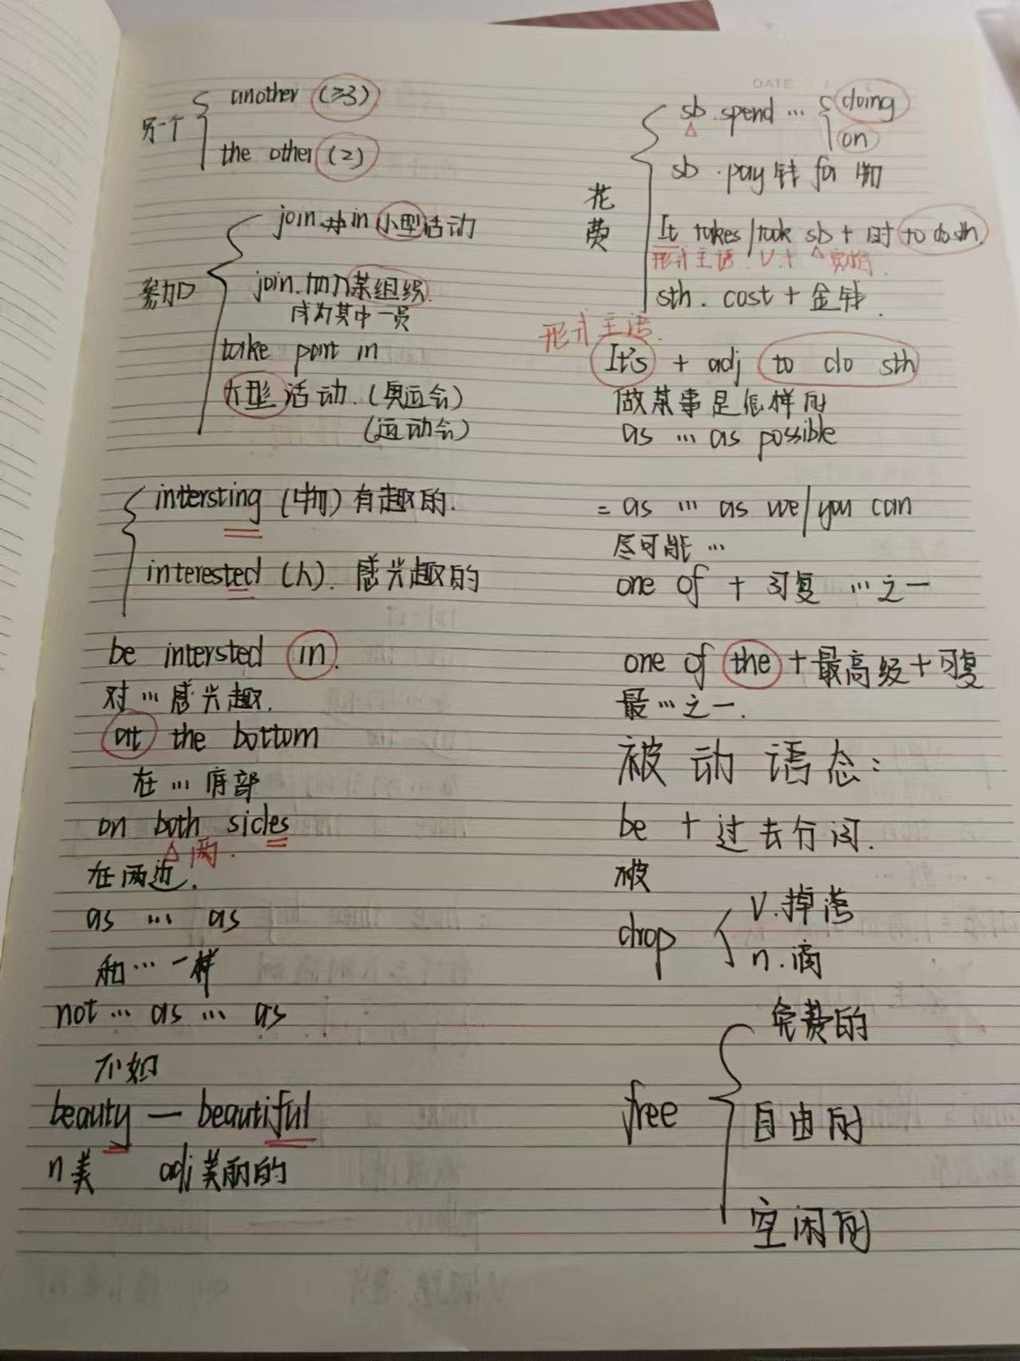 another (≥3)
另一个
the other (2)
join in 小型活动
参加
join. 加入某组织.
成为其中一员
take part in
大型活动. (奥运会)
(运动会)
intersting (物) 有趣的.
interested (人). 感兴趣的
be intersted in.
对…感兴趣.
at the bottom
在…底部
on both sides
两.
在两边.
as … as
和…一样
not … as … as
不如
beauty — beautiful
n美 adj美丽的
DATE
sb. spend … doing
on
sb. pay 钱 for 物
花费
It takes/took sb + 时 to do sth.
形式主语. V. + 宾格.
sth. cost + 金钱.
形式主语.
It's + adj to do sth
做某事是怎样的
as … as possible
= as … as we/you can
尽可能…
one of + 可复 …之一
one of the + 最高级 + 可复
最…之一.
被动语态:
be + 过去分词.
被
drop
v.掉落
n.滴
free
免费的
自由的
空闲的